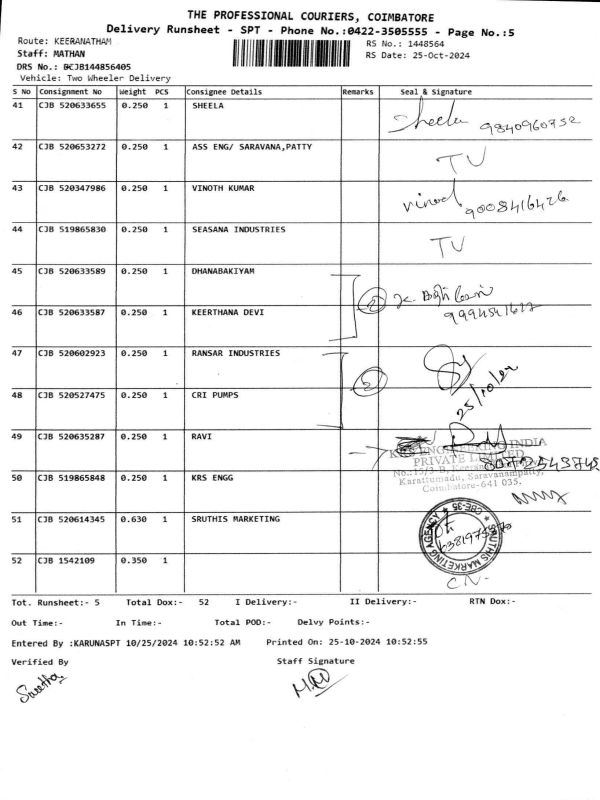 THE PROFESSIONAL COURIERS, COIMBATORE
Delivery Runsheet - SPT - Phone No.:0422-3505555 - Page No.:5
Route: KEERANATHAM
RS No.: 1448564
Staff: MATHAN
RS Date: 25-Oct-2024
DRS No.: DCJB144856405
Vehicle: Two Wheeler Delivery
S No Consignment No Weight PCS Consignee Details Remarks Seal & Signature
41 CJB 520633655 0.250 1 SHEELA Sheela 9840960752
42 CJB 520653272 0.250 1 ASS ENG/ SARAVANA,PATTY TV
43 CJB 520347986 0.250 1 VINOTH KUMAR Vinod 9008416426
44 CJB 519865830 0.250 1 SEASANA INDUSTRIES TV
45 CJB 520633589 0.250 1 DHANABAKIYAM
46 CJB 520633587 0.250 1 KEERTHANA DEVI
47 CJB 520602923 0.250 1 RANSAR INDUSTRIES
48 CJB 520527475 0.250 1 CRI PUMPS 25/10/24
49 CJB 520635287 0.250 1 RAVI 8072543745
KRS ENGINEERING INDIA
PRIVATE LIMITED
Karattumadu, Saravanampatty,
Coimbatore-641 035.
50 CJB 519865848 0.250 1 KRS ENGG
51 CJB 520614345 0.630 1 SRUTHIS MARKETING
SRUTHIS MARKETING AGENCY * CBE-35 *
52 CJB 1542109 0.350 1 CN-
Tot. Runsheet:- 5 Total Dox:- 52 I Delivery:- II Delivery:- RTN Dox:-
Out Time:- In Time:- Total POD:- Delvy Points:-
Entered By :KARUNASPT 10/25/2024 10:52:52 AM Printed On: 25-10-2024 10:52:55
Verified By Staff Signature